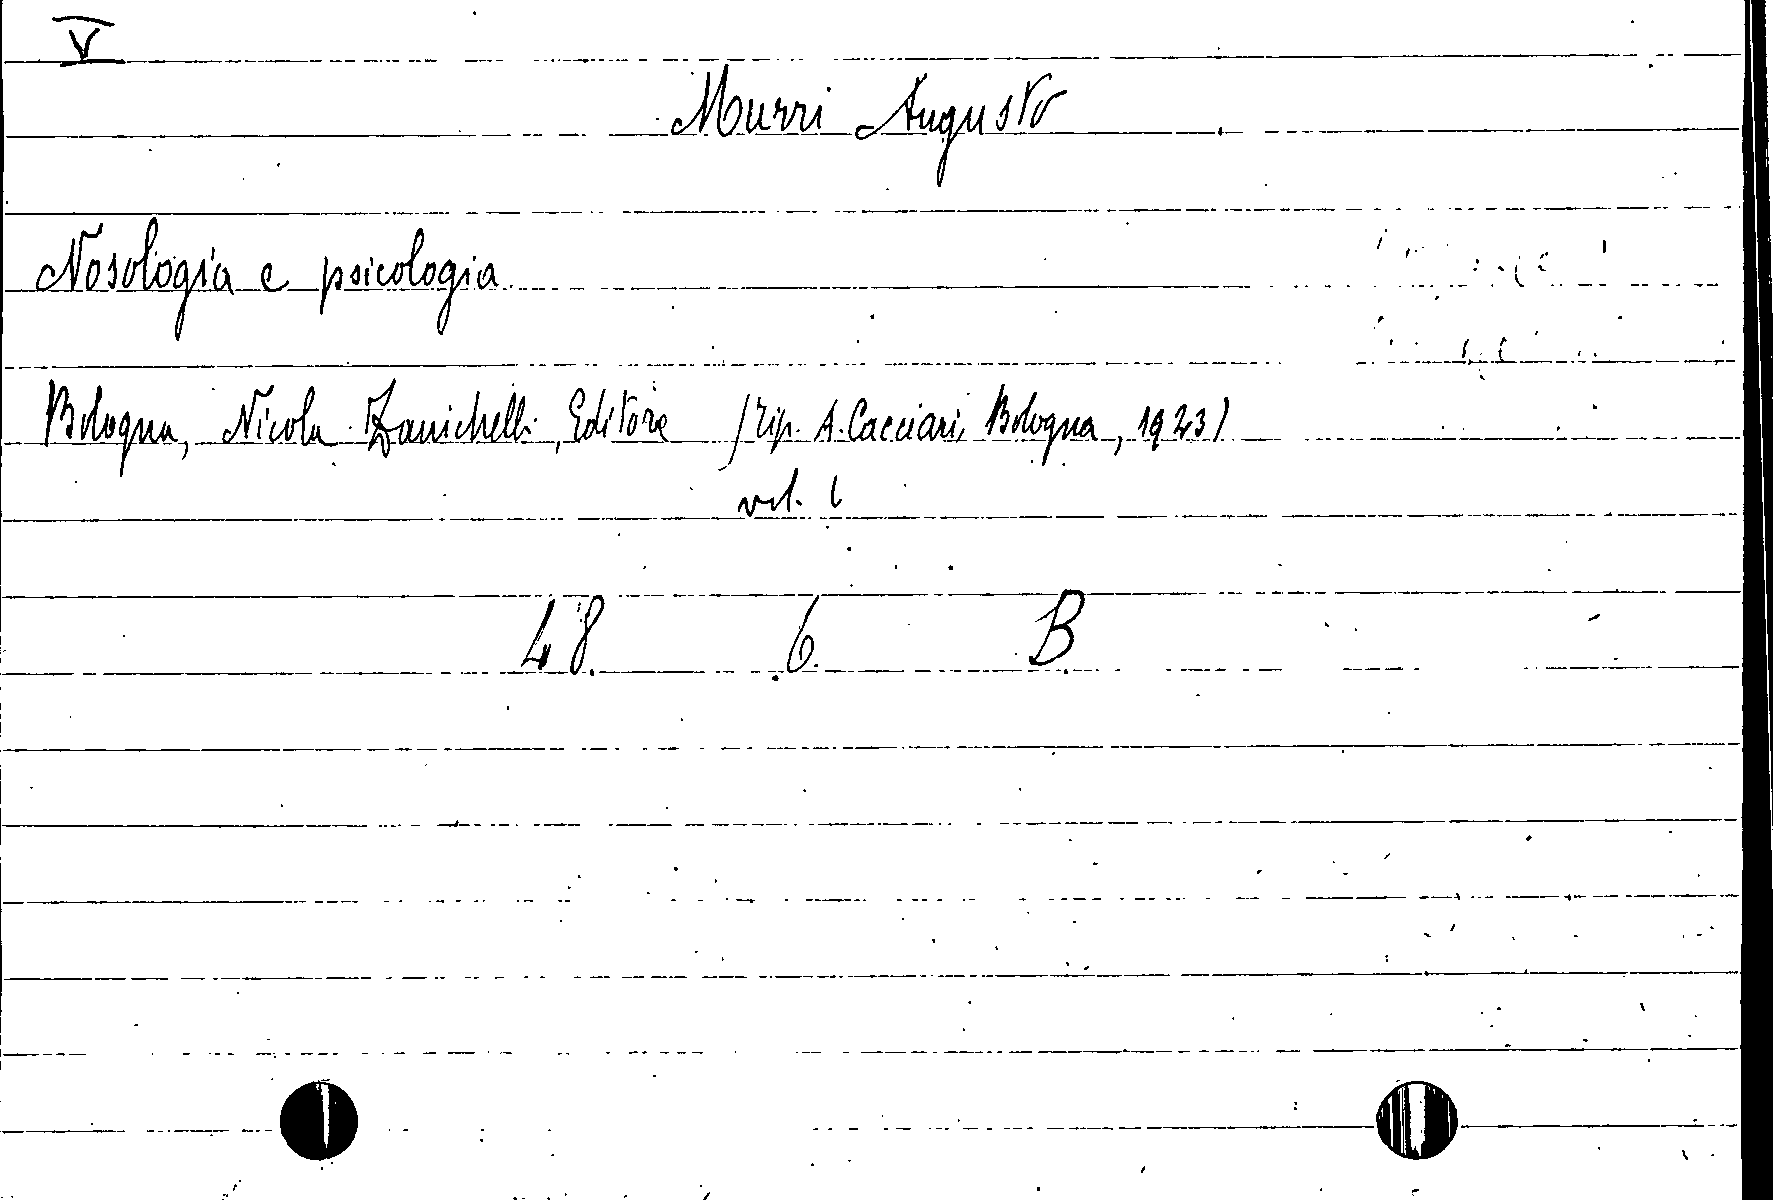 V
Murri Augusto
Nosologia e psicologia
Bologna, Nicola Zanichelli, Editore (Tip. A. Cacciari, Bologna, 1923)
vol. 1
48. 6. B